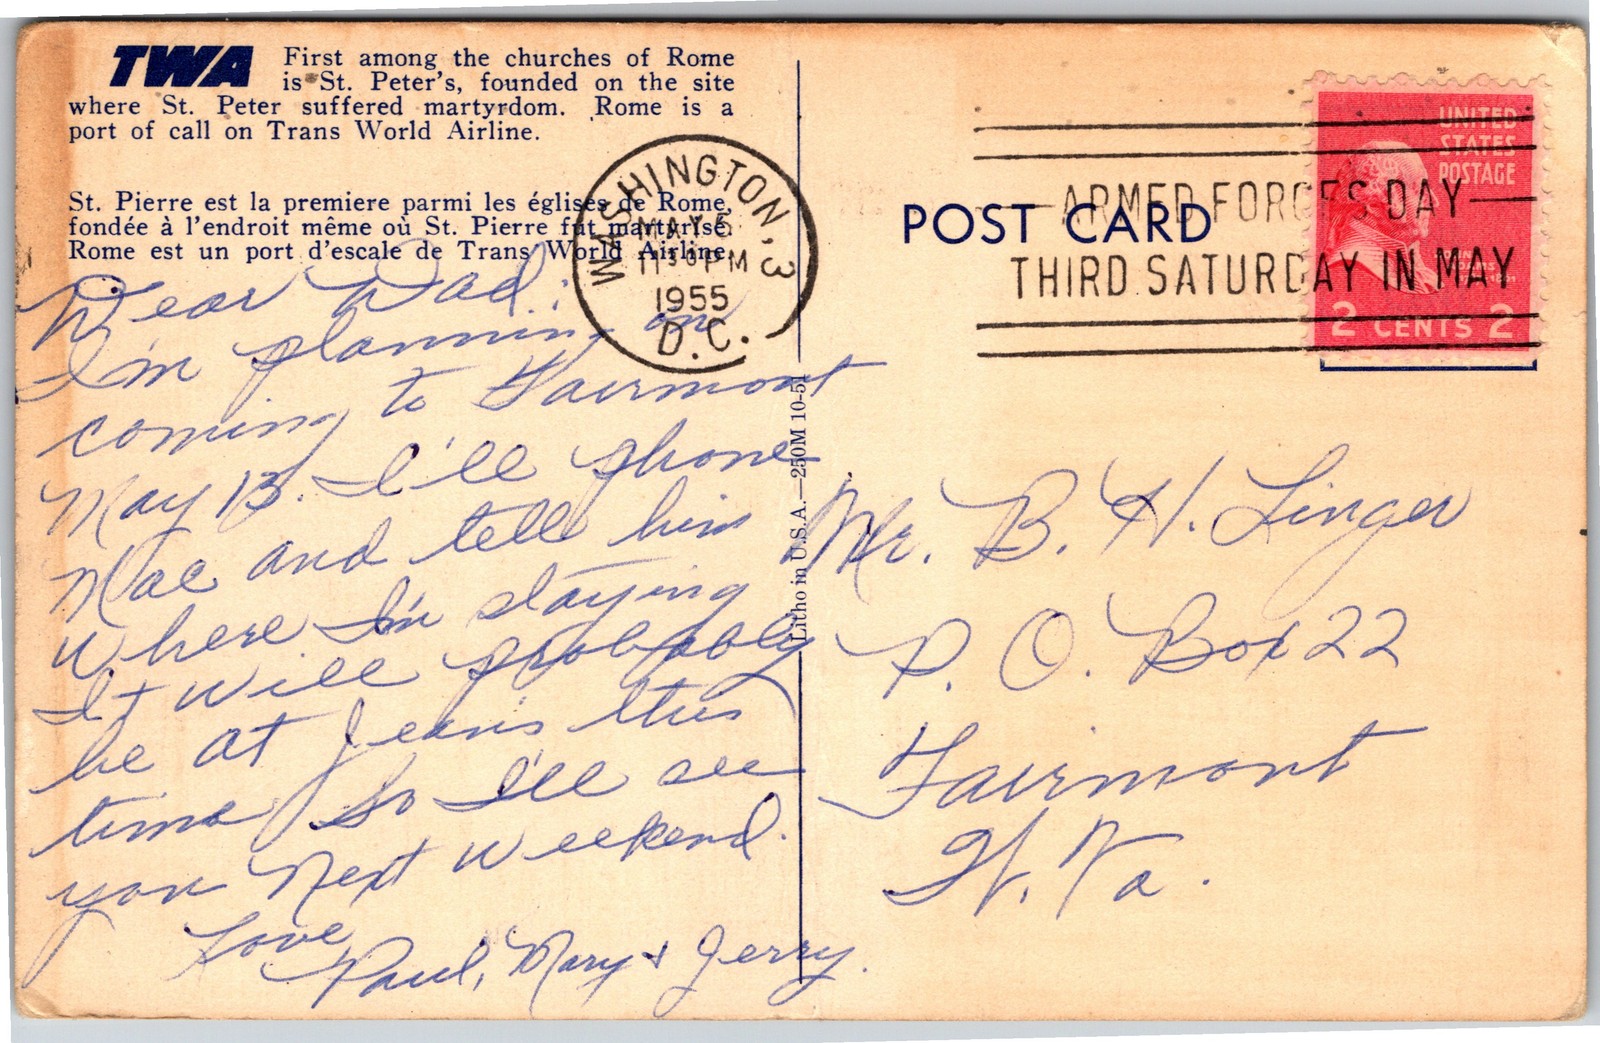 TWA First among the churches of Rome
is St. Peter's, founded on the site
where St. Peter suffered martyrdom. Rome is a
port of call on Trans World Airline.
St. Pierre est la premiere parmi les églises de Rome,
fondée à l'endroit même où St. Pierre fut martyrisé.
Rome est un port d'escale de Trans World Airline.
Dear Dad:
I'm planning on
coming to Fairmont
May 13. I'll phone
Mac and tell him
where I'm staying
It will probably
be at Jean's this
time so I'll see
you next weekend.
Love
Paul, Mary & Jerry.
WASHINGTON, 3
MAY 6
11 30 PM
1955
D.C.
Litho in U.S.A.—250M 10-51
POST CARD
ARMED FORCES DAY
THIRD SATURDAY IN MAY
UNITED
STATES
POSTAGE
2 CENTS 2
Mr. B. H. Linger
P. O. Box 22
Fairmont
W. Va.